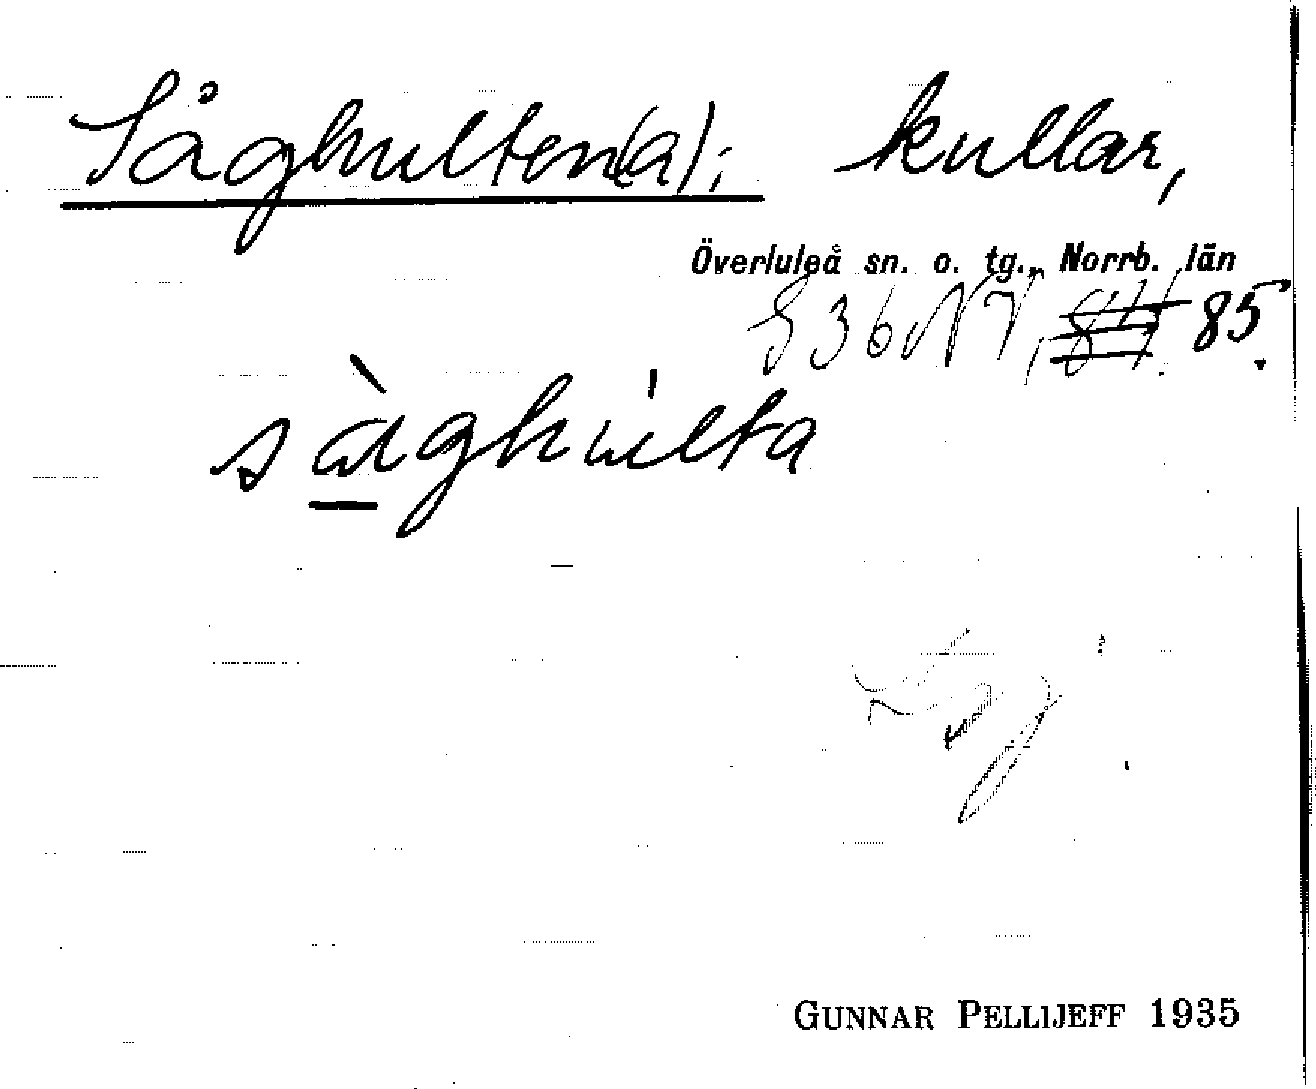 Såghulten(a); kullar,
Överluleå sn. o. tg., Norrb. län
S 36 NV, 85.
såghulta
GUNNAR PELLIJEFF 1935